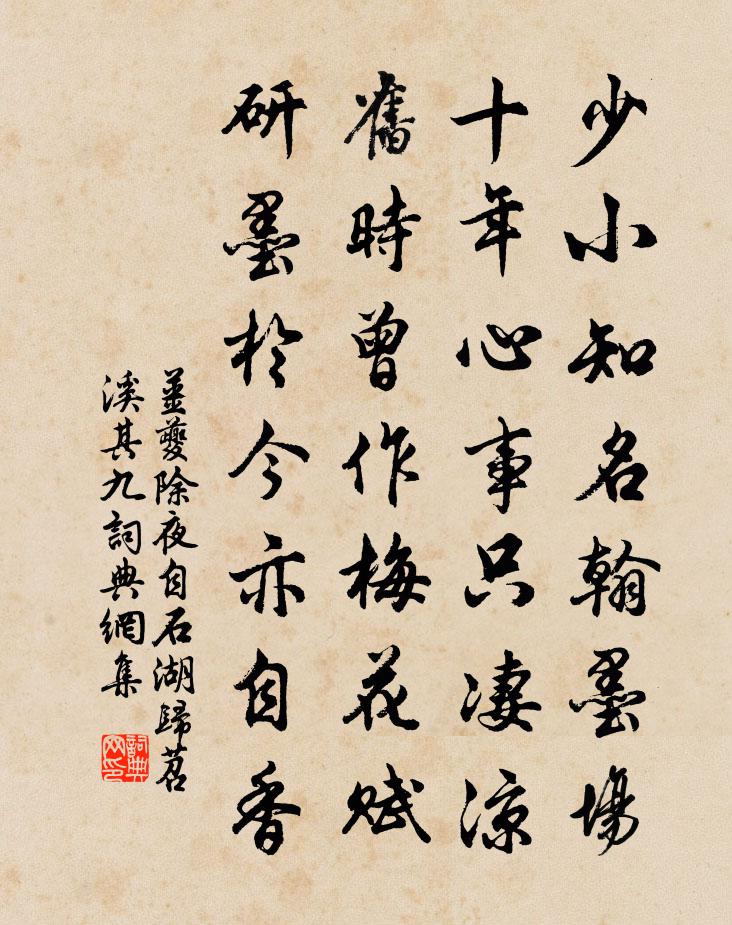 少小知名翰墨場
十年心事只凄涼
舊時曾作梅花賦
研墨於今亦自香
姜夔除夜自石湖歸苕
溪其九詞典網集
詞典
网印